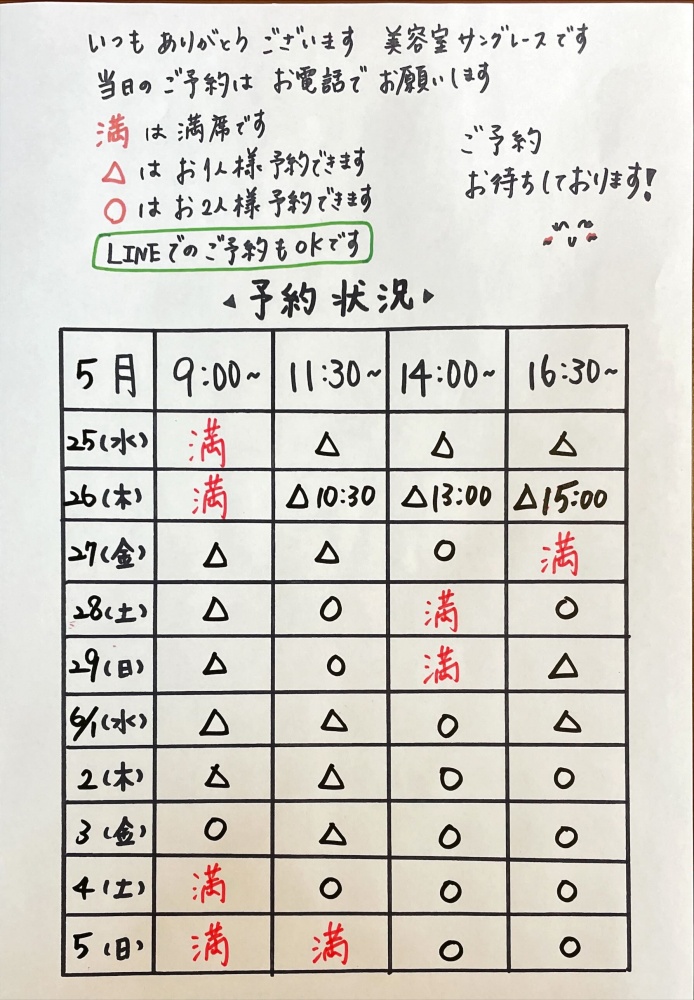 いつも ありがとう ございます 美容室 サングレースです
当日の ご予約は お電話で お願いします
満 は 満席です
△ は お1人様 予約できます
○ は お2人様 予約できます
LINEでの ご予約も OKです
ご予約
お待ちしております!
予約 状況
5月 9:00~ 11:30~ 14:00~ 16:30~
25(水) 満 △ △ △
26(木) 満 △10:30 △13:00 △15:00
27(金) △ △ ○ 満
28(土) △ ○ 満 ○
29(日) △ ○ 満 △
6/1(水) △ △ ○ △
2(木) △ △ ○ ○
3(金) ○ △ ○ ○
4(土) 満 ○ ○ ○
5(日) 満 満 ○ ○